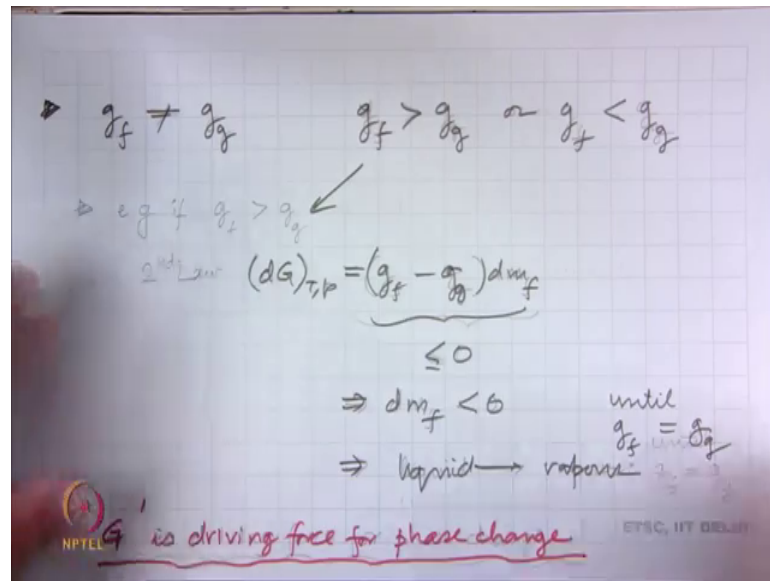 ▷ g_f ≠ g_g g_f > g_g or g_f < g_g
▷ e g if g_f > g_g
2nd Law (dG)_T,p = (g_f - g_g) dm_f
≤ 0
⇒ dm_f < 0 until
g_f = g_g
⇒ liquid → vapour
G is driving force for phase change
NPTEL
ETSC, IIT DELHI